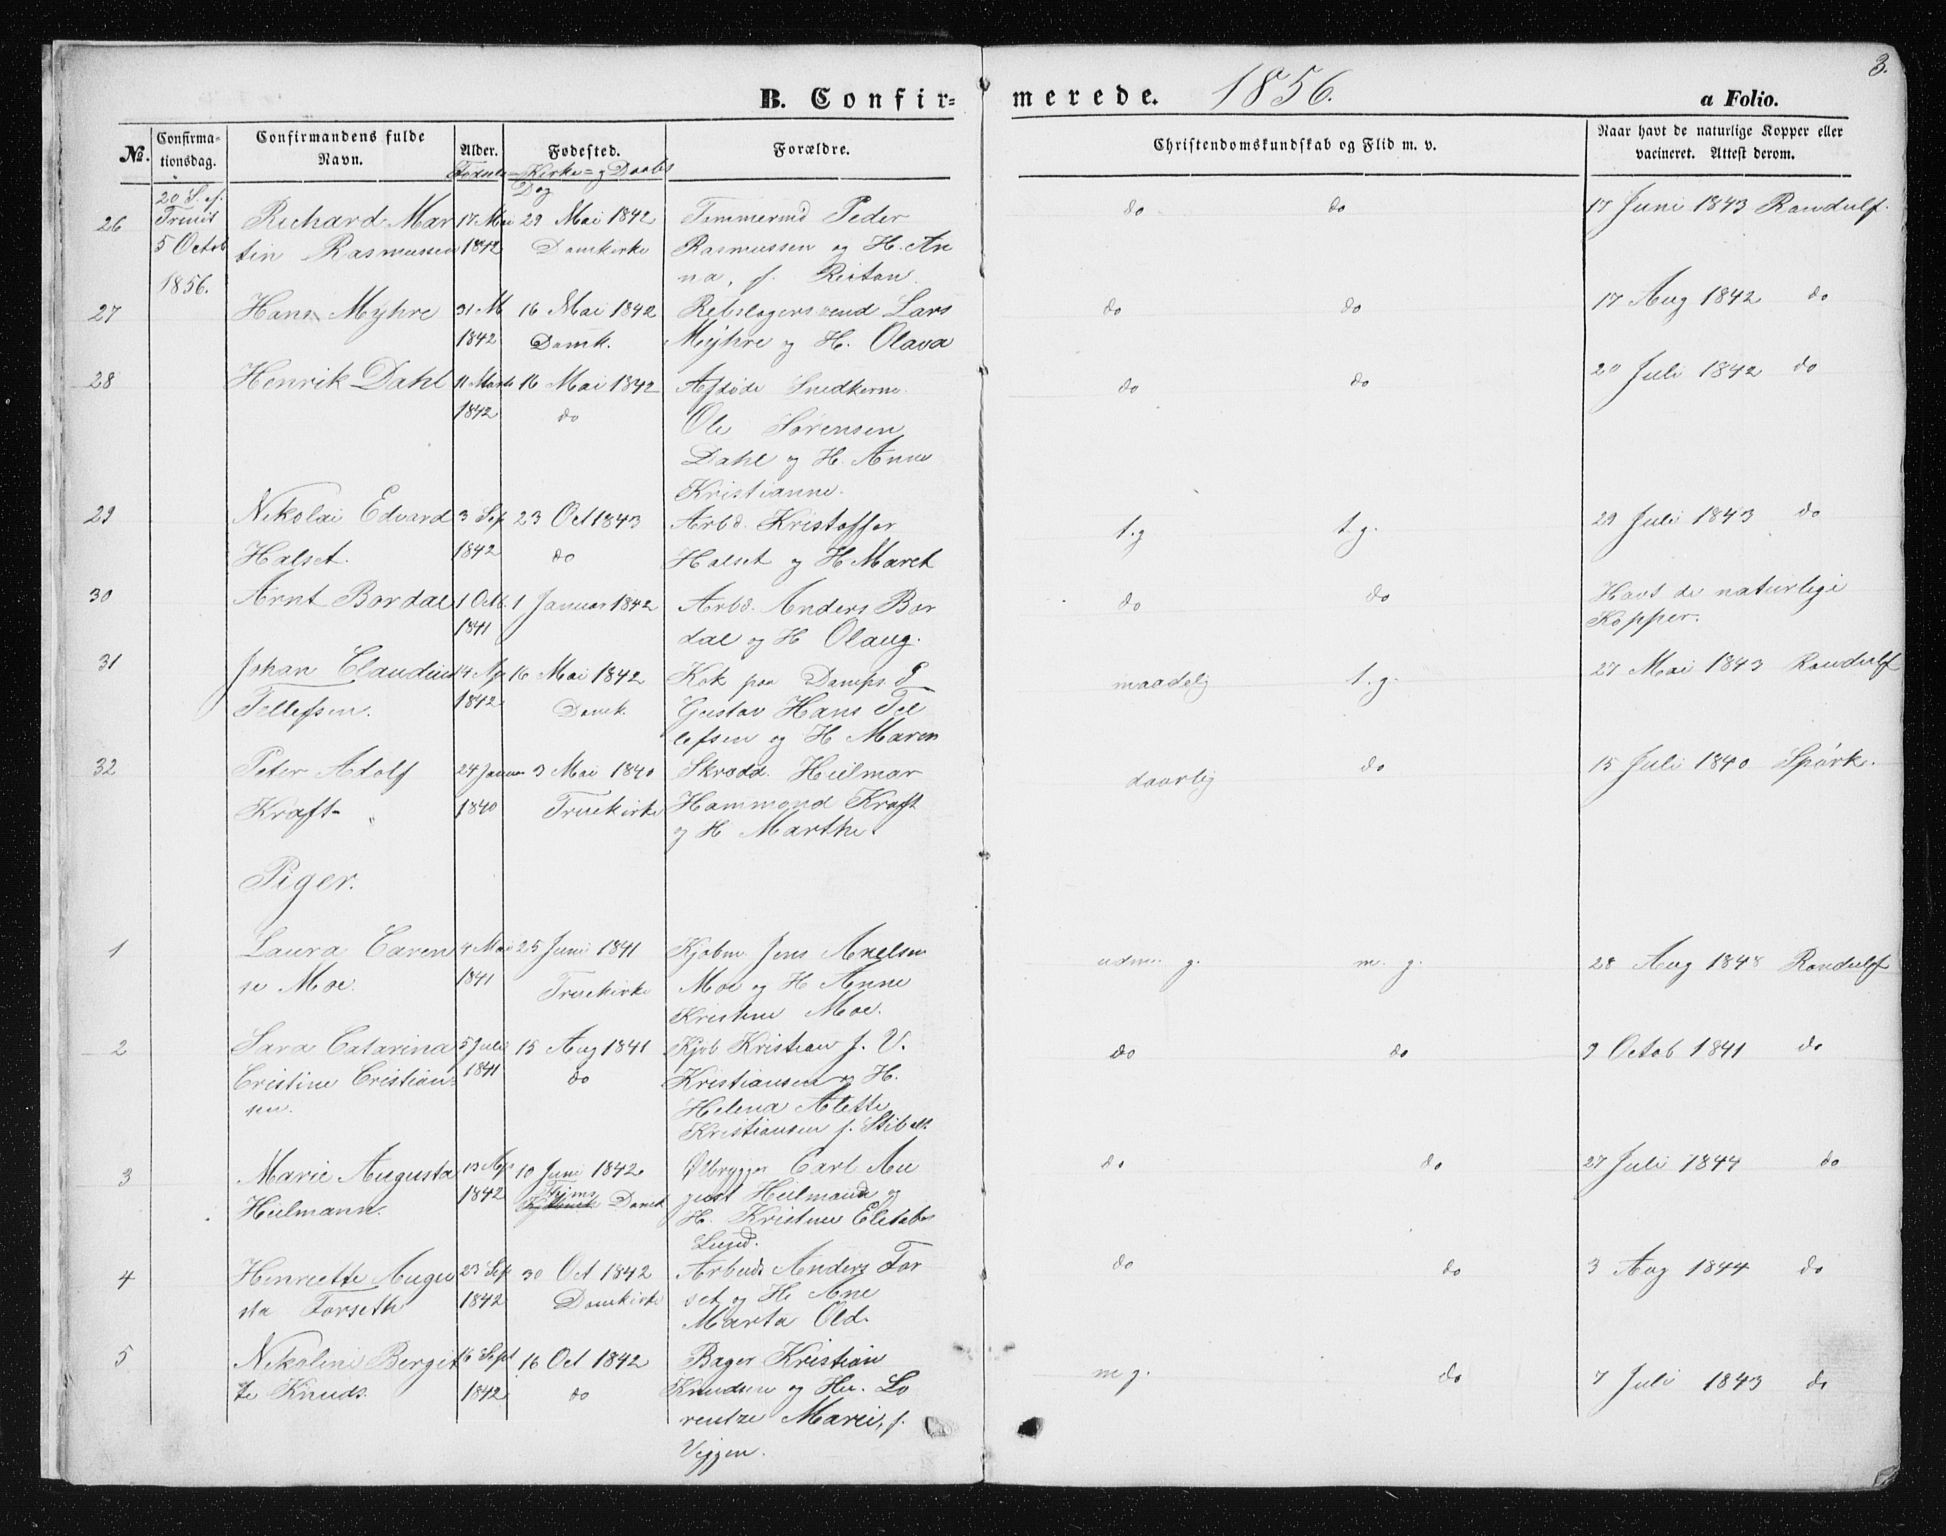 3.
B. Confirmerede. 1856.
a Folio.
No.
Confirmationsdag.
Confirmandens fulde Navn.
Alder.
Fødested.
Kirke- og Daabs Dag
Forældre.
Christendomskundskab og Flid m. v.
Naar havt de naturlige Kopper eller
vacineret. Attest derom.
20 S. ef.
Trinit
5 Octob
1856.
26 Richard Mar 17 Mai 29 Mai 1842 Peder do do 17 Juni 1843 Randulf.
tin Rasmussen 1842 Domkirke Rasmussen og H. An
na, f. Reitan.
27 Hans Myhre 31 M 16 Mai 1842 Lars do do 17 Aug 1842 do
1842 Domk. Myhre og H. Olava
28 Henrik Dahl 11 Marts 16 Mai 1842 Afdøde do do 20 Juli 1842 do
1842 do Ole Sørensen
Dahl og H. Anne
Kristianne.
29 Nikolai Edvard 3 Sep 23 Oct 1843 Arbd. Kristoffer t.g t.g. 29 Juli 1843 do
Halset. 1842 do Halset og H Maret
30 Arnt Bordal 1 Octb. 1 Januar 1842 Arbd. Anders Bor do do Havt de naturlige
1841 dal og H Olaug. Kopper.
31 Johan Claudius 14 Ap 16 Mai 1842 Kok paa Damps. P maadelig t.g. 27 Mai 1843 Randulf
Tellefsen. 1842 Domk. Gustav Hans Tel
lefsen og H Maren
32 Peter Adolf 24 Januar 3 Mai 1840 Skrædd. Heilmar daarlig do 15 Juli 1840 Spörk.
Kraft 1840 Fruekirke Hammond Kraft
og H Marthe
Piger.
1 Laura Caren 4 Mai 25 Juni 1841 Kjøbm Jens Anelsen udm. g. m. g. 28 Aug 1848 Randulf
se Moe. 1841 Fruekirke Moe og H Anne
Kristine Moe.
2 Sara Catarina 5 Juli 15 Aug 1841 Kjøb Kristian J. V. do do 9 Octob 1841 do
Cristine Cristian- 1841 do Kristiansen og H.
sen. Helena Alette
Kristiansen f.
3 Marie Augusta 13 Ap 10 Juni 1842 Ølbrygger Carl Au do do 27 Juli 1844 do
Heilmann. 1842 Domk gust Heilmann og
H. Kristine Elisabe
Lund.
4 Henriette Augu 23 Sep 30 Oct 1842 Arbeids Anders For do do 3 Aug 1844 do
sta Forseth 1842 Domkirke set og H. Ane
Marta Old.
5 Nikoline Berget 16 Sept 16 Oct 1842 Bager Kristian m g. do 7 Juli 1843 do
te Knuds. 1842 do Knudsen og Hu. Lo
rentze Marie, f.
Viggen.